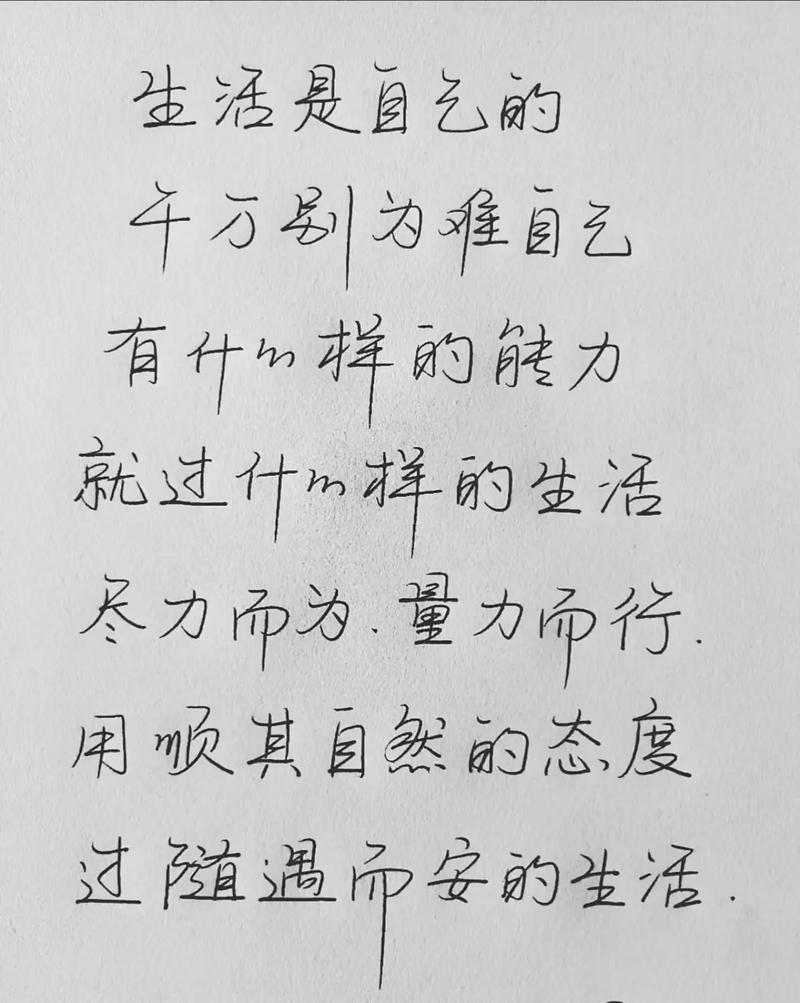 生活是自己的
千万别为难自己
有什么样的能力
就过什么样的生活
尽力而为.量力而行.
用顺其自然的态度
过随遇而安的生活.